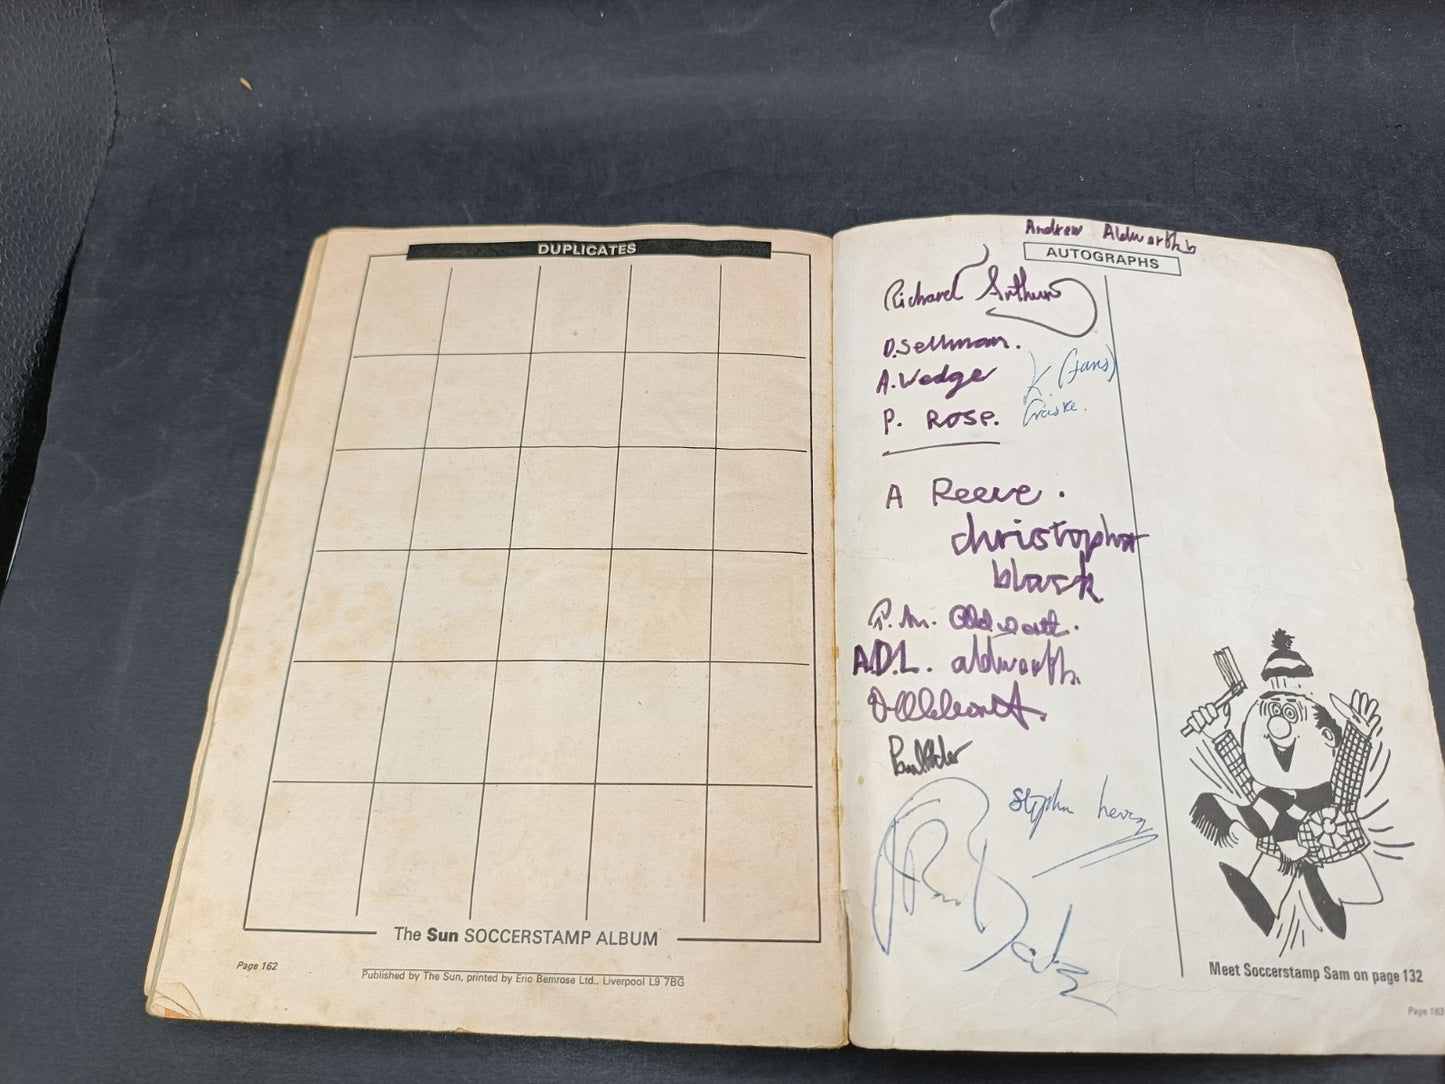 DUPLICATES
The Sun SOCCERSTAMP ALBUM
Page 162
Published by The Sun, printed by Eric Bemrose Ltd., Liverpool L9 7BG
Andrew Aldworth
AUTOGRAPHS
Richard Arthurs
D. Sellman.
A. Wedge
K. (fans)
P. ROSE.
A Reeve.
christopher
black
P. M. Aldworth.
A.D.L. aldworth.
D Aldworth.
Stephen
Paul
Meet Soccerstamp Sam on page 132
Page 163